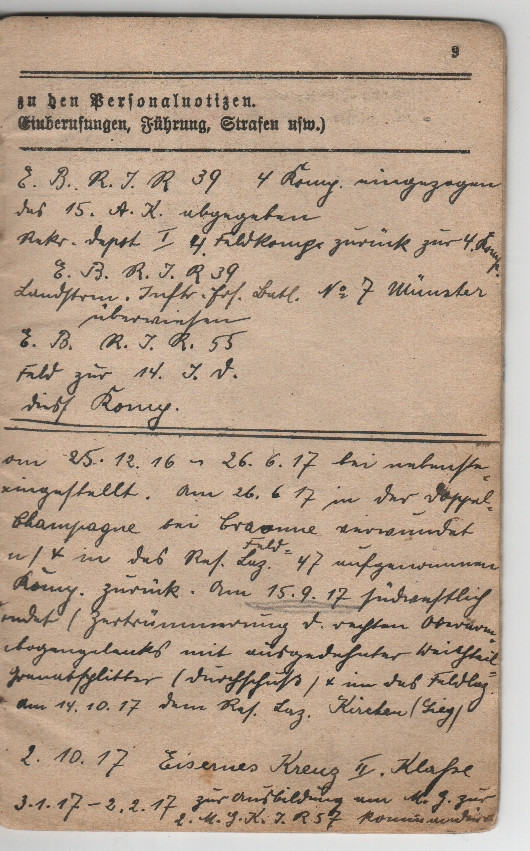 9
zu den Personalnotizen.
Einberufungen, Führung, Strafen usw.)
E. B. R. I. R 39 4 Komp. eingezogen
des 15. A. K. abgegeben
Rekr. Depot I 4 Feldkomp. zurück zur 4. Komp.
E. B. R. I. R 39
Landstrm. Inftr. Ers. Batl. No 7 Münster
überwiesen
E. B. R. I. R. 55
Feld zur 14. I. D.
Komp.
om 25. 12. 16 - 26. 6. 17 bei nebenste-
eingestellt. Am 26. 6 17 in der Doppel-
Champagne bei Craonne verwundet
u/ & in das Res. Feld- Laz. 47 aufgenommen
Komp. zurück. Am 15. 9. 17 südwestlich
undet (Zertrümmerung d. rechten Oberarm-
bogengelenks mit ausgedehnter Weichteil-
Granatsplitter (Durchschuß) & in das Feldlaz.
am 14. 10. 17 dem Res. Laz. Kirchen (Sieg)
2. 10. 17 Eisernes Kreuz II. Klasse
3. 1. 17 - 2. 2. 17 zur Ausbildung am M. G. zur
2. M. G. K. I. R 57 kommandiert